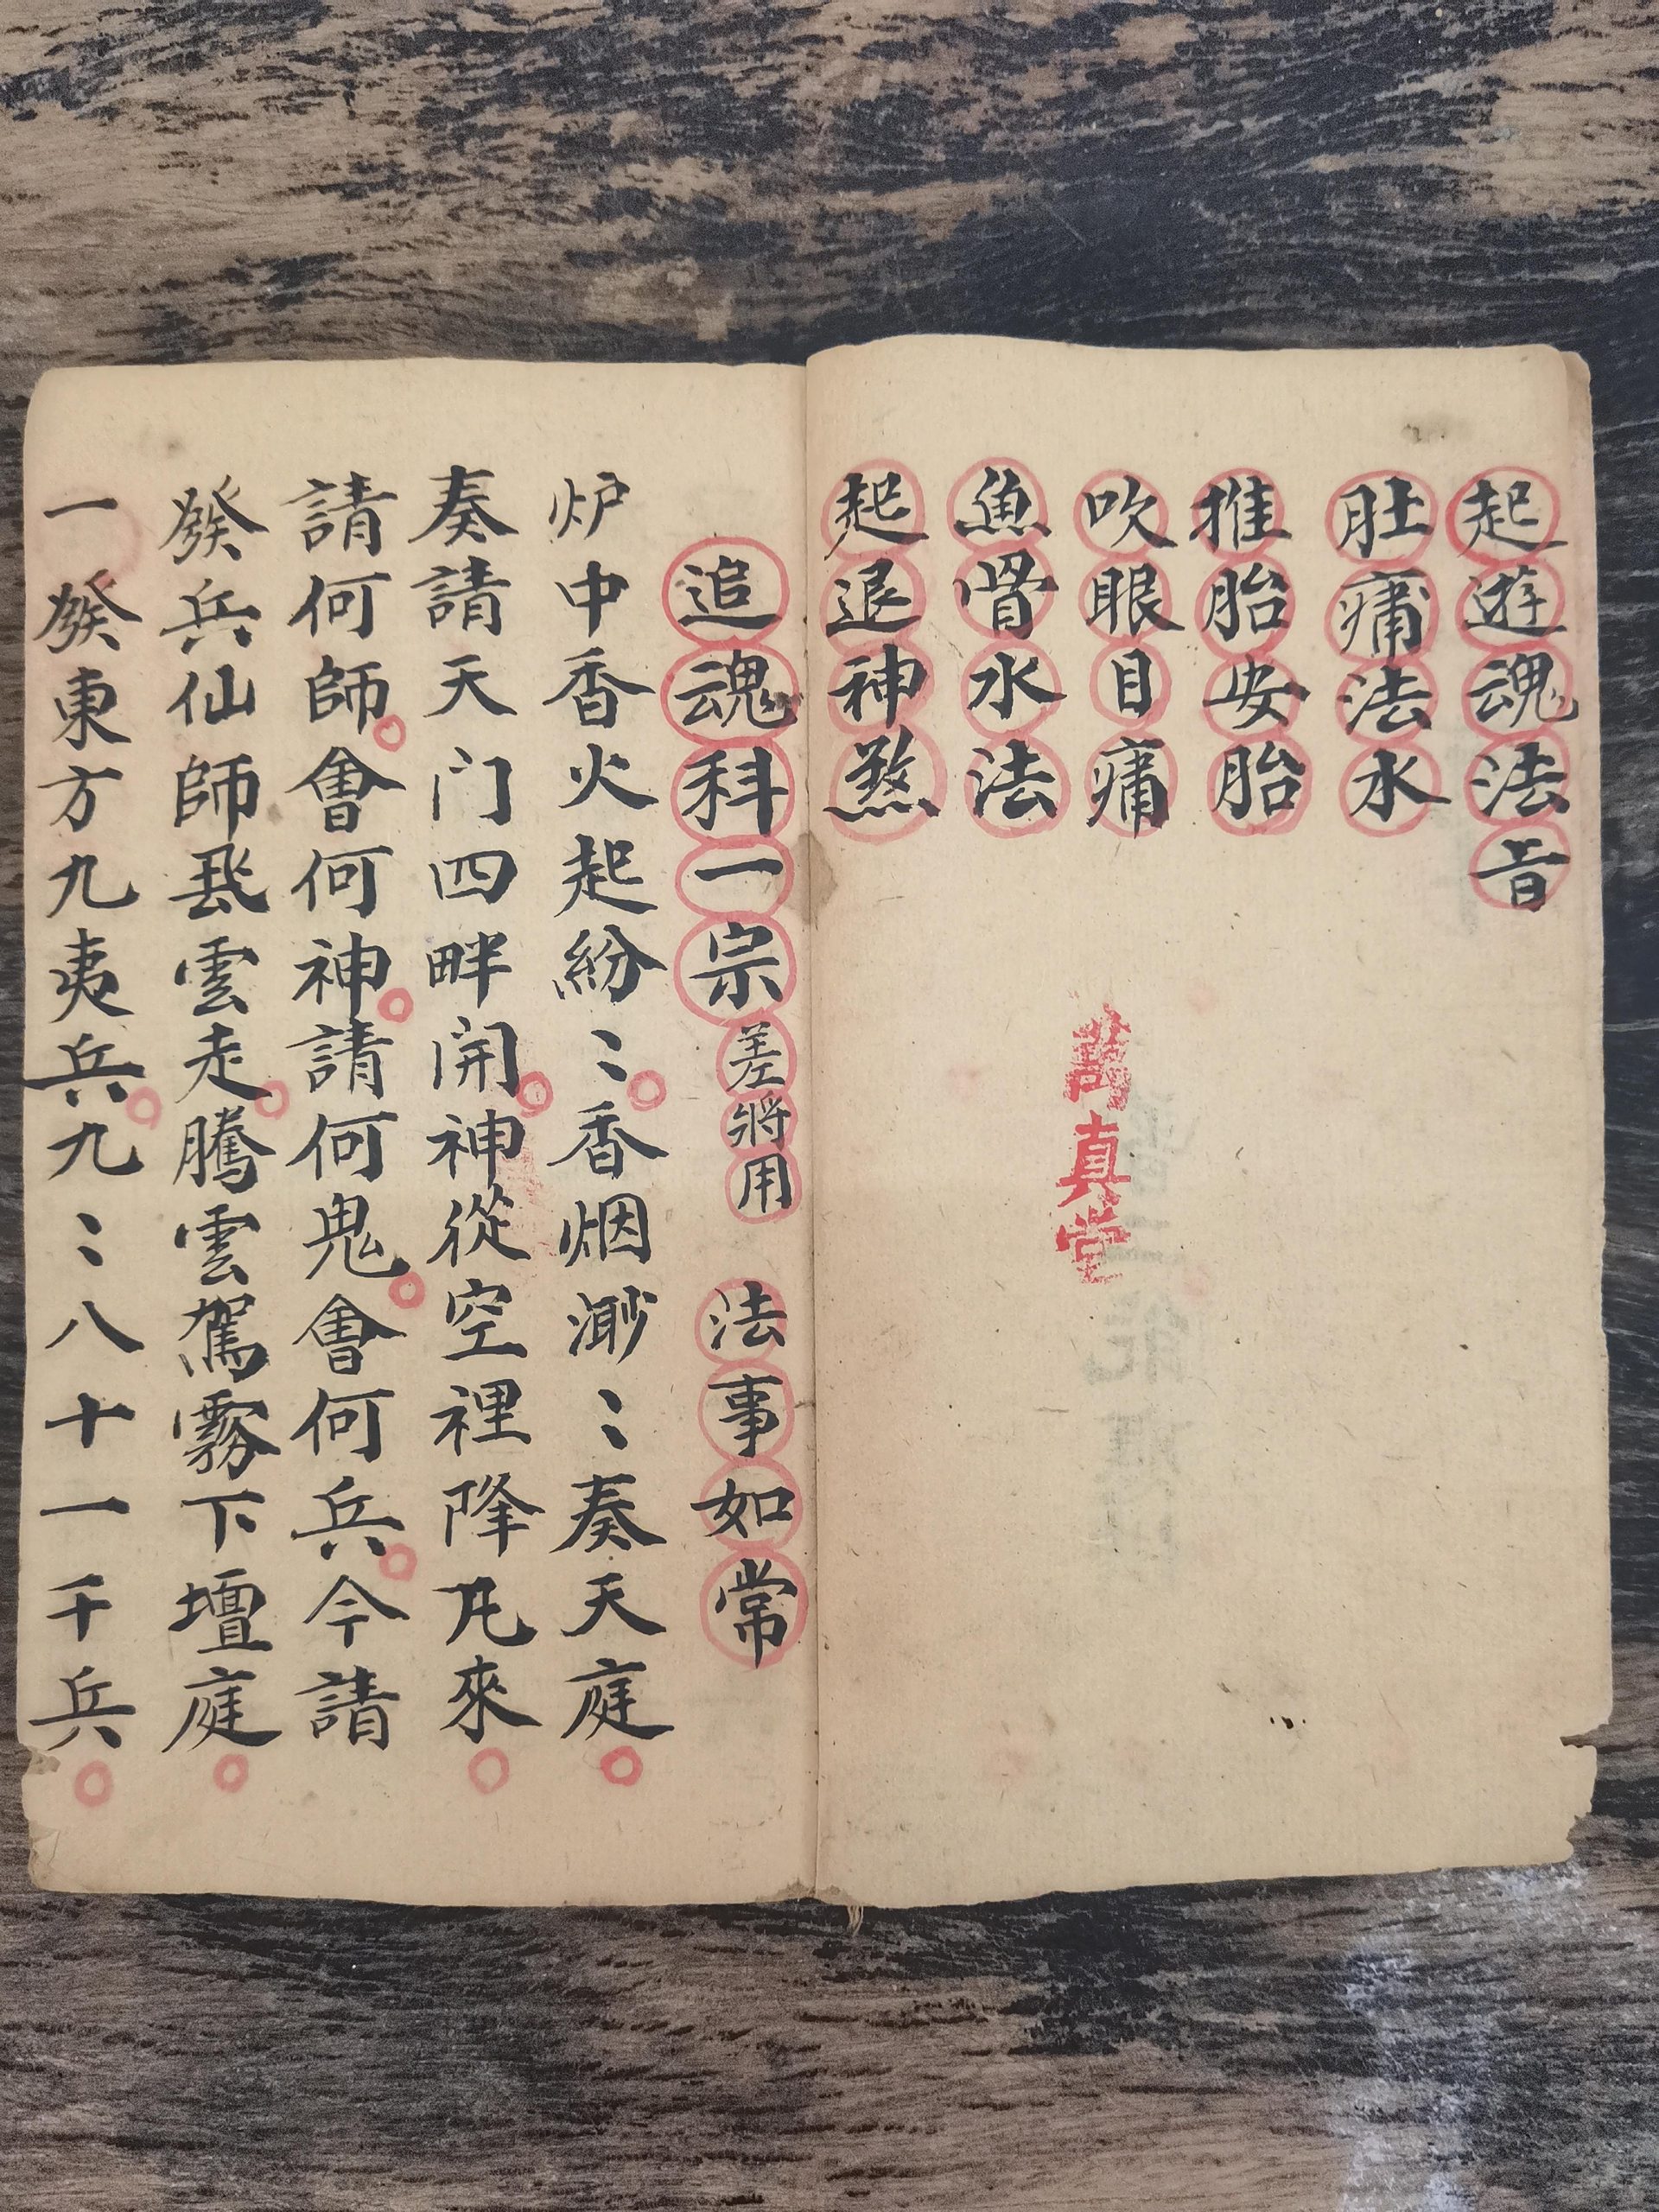 起遊魂法旨
肚痛法水
推胎安胎
吹眼目痛
魚骨水法
起退神煞
萬真堂
追魂科一宗 差將用 法事如常
炉中香火起紛〻香烟渺〻奏天庭
奏請天门四畔開神從空裡降凡來
請何師會何神請何鬼會何兵今請
發兵仙師飛雲走騰雲駕霧下壇庭
一發東方九夷兵九〻八十一千兵